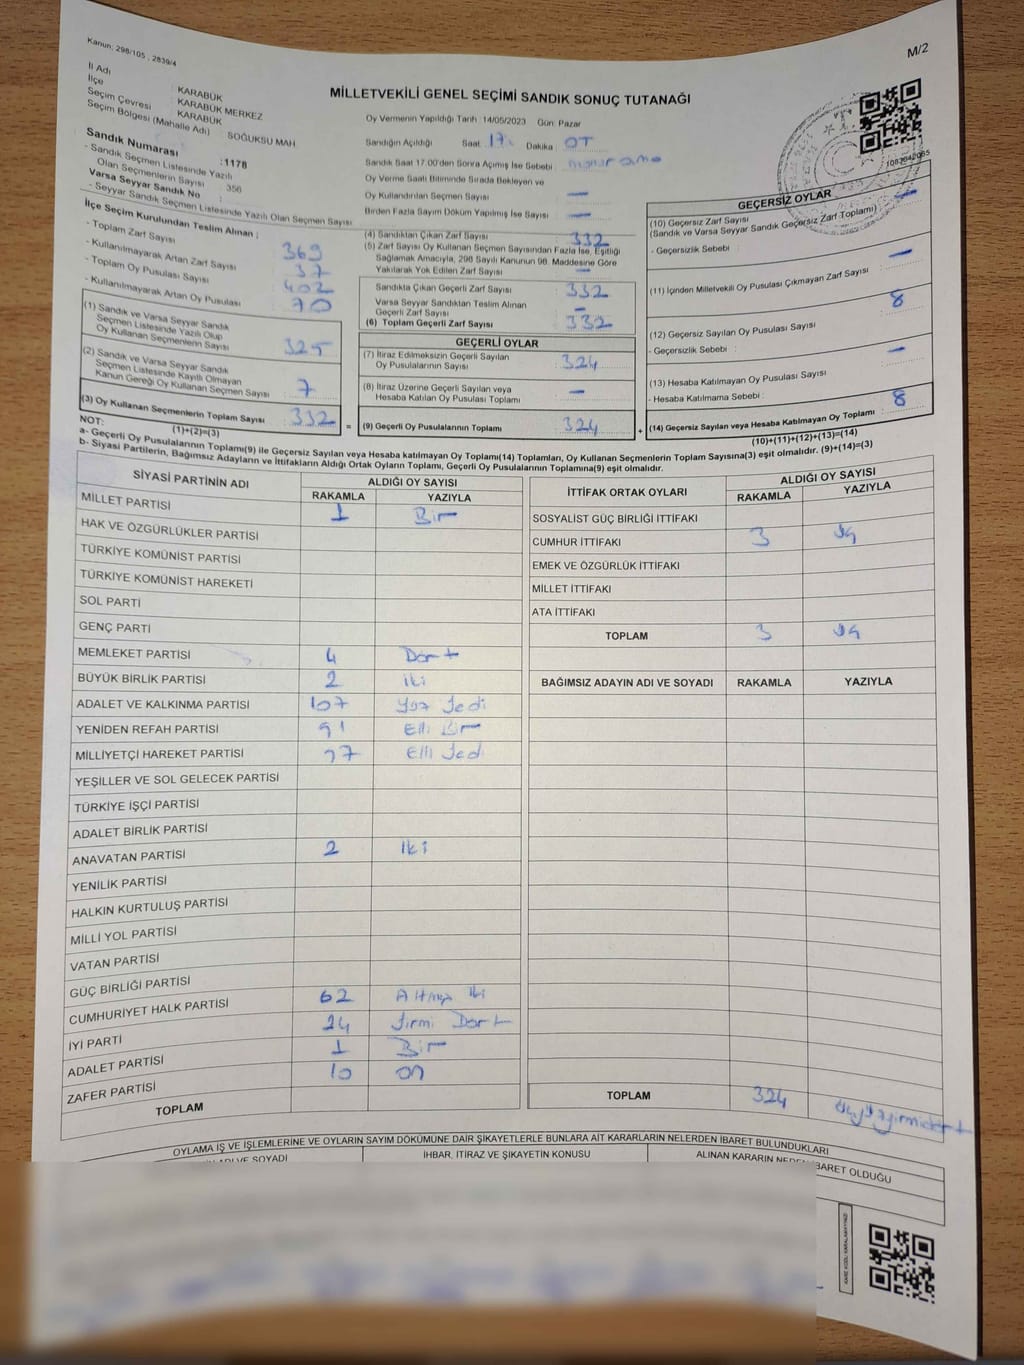 Kanun: 298/105 , 2839/4
M/2
MİLLETVEKİLİ GENEL SEÇİMİ SANDIK SONUÇ TUTANAĞI
İl Adı : KARABÜK
İlçe : KARABÜK MERKEZ
Seçim Çevresi : KARABÜK
Seçim Bölgesi (Mahalle Adı) : SOĞUKSU MAH
Sandık Numarası : 1178
- Sandık Seçmen Listesinde Yazılı
Olan Seçmenlerin Sayısı : 356
Varsa Seyyar Sandık No :
- Seyyar Sandık Seçmen Listesinde Yazılı Olan Seçmen Sayısı
İlçe Seçim Kurulundan Teslim Alınan ;
- Toplam Zarf Sayısı : 369
- Kullanılmayarak Artan Zarf Sayısı : 37
- Toplam Oy Pusulası Sayısı : 402
- Kullanılmayarak Artan Oy Pusulası : 70
(1) Sandık ve Varsa Seyyar Sandık
Seçmen Listesinde Yazılı Olup
Oy Kullanan Seçmenlerin Sayısı : 325
(2) Sandık ve Varsa Seyyar Sandık
Seçmen Listesinde Kayıtlı Olmayan
Kanun Gereği Oy Kullanan Seçmen Sayısı : 7
(3) Oy Kullanan Seçmenlerin Toplam Sayısı : 332
(1)+(2)=(3)
Oy Vermenin Yapıldığı Tarih :14/05/2023 Gün: Pazar
Sandığın Açıldığı Saat 17: Dakika : OT
Sandık Saat 17.00'den Sonra Açımış İse Sebebi :
Oy Verme Saati Bitiminde Sırada Bekleyen ve
Oy Kullandırılan Seçmen Sayısı : —
Birden Fazla Sayım Döküm Yapılmış İse Sayısı : —
(4) Sandıktan Çıkan Zarf Sayısı : 332
(5) Zarf Sayısı Oy Kullanan Seçmen Sayısından Fazla İse, Eşitliği
Sağlamak Amacıyla, 298 Sayılı Kanunun 98. Maddesine Göre
Yakılarak Yok Edilen Zarf Sayısı : —
Sandıkta Çıkan Geçerli Zarf Sayısı : 332
Varsa Seyyar Sandıktan Teslim Alınan
Geçerli Zarf Sayısı : —
(6) Toplam Geçerli Zarf Sayısı : 332
GEÇERLİ OYLAR
(7) İtiraz Edilmeksizin Geçerli Sayılan
Oy Pusulalarının Sayısı : 324
(8) İtiraz Üzerine Geçerli Sayılan veya
Hesaba Katılan Oy Pusulası Toplamı : —
= (9) Geçerli Oy Pusulalarının Toplamı : 324 +
1082842065
GEÇERSİZ OYLAR
(10) Geçersiz Zarf Sayısı
(Sandık ve Varsa Seyyar Sandık Geçersiz Zarf Toplamı) : —
- Geçersizlik Sebebi :
(11) İçinden Milletvekili Oy Pusulası Çıkmayan Zarf Sayısı : —
(12) Geçersiz Sayılan Oy Pusulası Sayısı : 8
- Geçersizlik Sebebi :
(13) Hesaba Katılmayan Oy Pusulası Sayısı : —
- Hesaba Katılmama Sebebi :
(14) Geçersiz Sayılan veya Hesaba Katılmayan Oy Toplamı : 8
(10)+(11)+(12)+(13)=(14)
NOT:
a- Geçerli Oy Pusulalarının Toplamı(9) ile Geçersiz Sayılan veya Hesaba katılmayan Oy Toplamı(14) Toplamları, Oy Kullanan Seçmenlerin Toplam Sayısına(3) eşit olmalıdır. (9)+(14)=(3)
b- Siyasi Partilerin, Bağımsız Adayların ve İttifakların Aldığı Ortak Oyların Toplamı, Geçerli Oy Pusulalarının Toplamına(9) eşit olmalıdır.
SİYASİ PARTİNİN ADI ALDIĞI OY SAYISI
RAKAMLA YAZIYLA
MİLLET PARTİSİ 1 Bir
HAK VE ÖZGÜRLÜKLER PARTİSİ
TÜRKİYE KOMÜNİST PARTİSİ
TÜRKİYE KOMÜNİST HAREKETİ
SOL PARTİ
GENÇ PARTİ
MEMLEKET PARTİSİ 4 Dört
BÜYÜK BİRLİK PARTİSİ 2 iki
ADALET VE KALKINMA PARTİSİ 107 Yüz Yedi
YENİDEN REFAH PARTİSİ 51 Elli Bir
MİLLİYETÇİ HAREKET PARTİSİ 57 Elli Yedi
YEŞİLLER VE SOL GELECEK PARTİSİ
TÜRKİYE İŞÇİ PARTİSİ
ADALET BİRLİK PARTİSİ
ANAVATAN PARTİSİ 2 İki
YENİLİK PARTİSİ
HALKIN KURTULUŞ PARTİSİ
MİLLİ YOL PARTİSİ
VATAN PARTİSİ
GÜÇ BİRLİĞİ PARTİSİ
CUMHURİYET HALK PARTİSİ 62 Altmış iki
İYİ PARTİ 24 Yirmi Dört
ADALET PARTİSİ 1 Bir
ZAFER PARTİSİ 10 On
TOPLAM
İTTİFAK ORTAK OYLARI ALDIĞI OY SAYISI
RAKAMLA YAZIYLA
SOSYALİST GÜÇ BİRLİĞİ İTTİFAKI
CUMHUR İTTİFAKI 3 Üç
EMEK VE ÖZGÜRLÜK İTTİFAKI
MİLLET İTTİFAKI
ATA İTTİFAKI
TOPLAM 3 Üç
BAĞIMSIZ ADAYIN ADI VE SOYADI RAKAMLA YAZIYLA
TOPLAM 324 üçyüzyirmidört
OYLAMA İŞ VE İŞLEMLERİNE VE OYLARIN SAYIM DÖKÜMÜNE DAİR ŞİKAYETLERLE BUNLARA AİT KARARLARIN NELERDEN İBARET BULUNDUKLARI
VE SOYADI İHBAR, İTİRAZ VE ŞİKAYETİN KONUSU ALINAN KARARIN NEDEN İBARET OLDUĞU